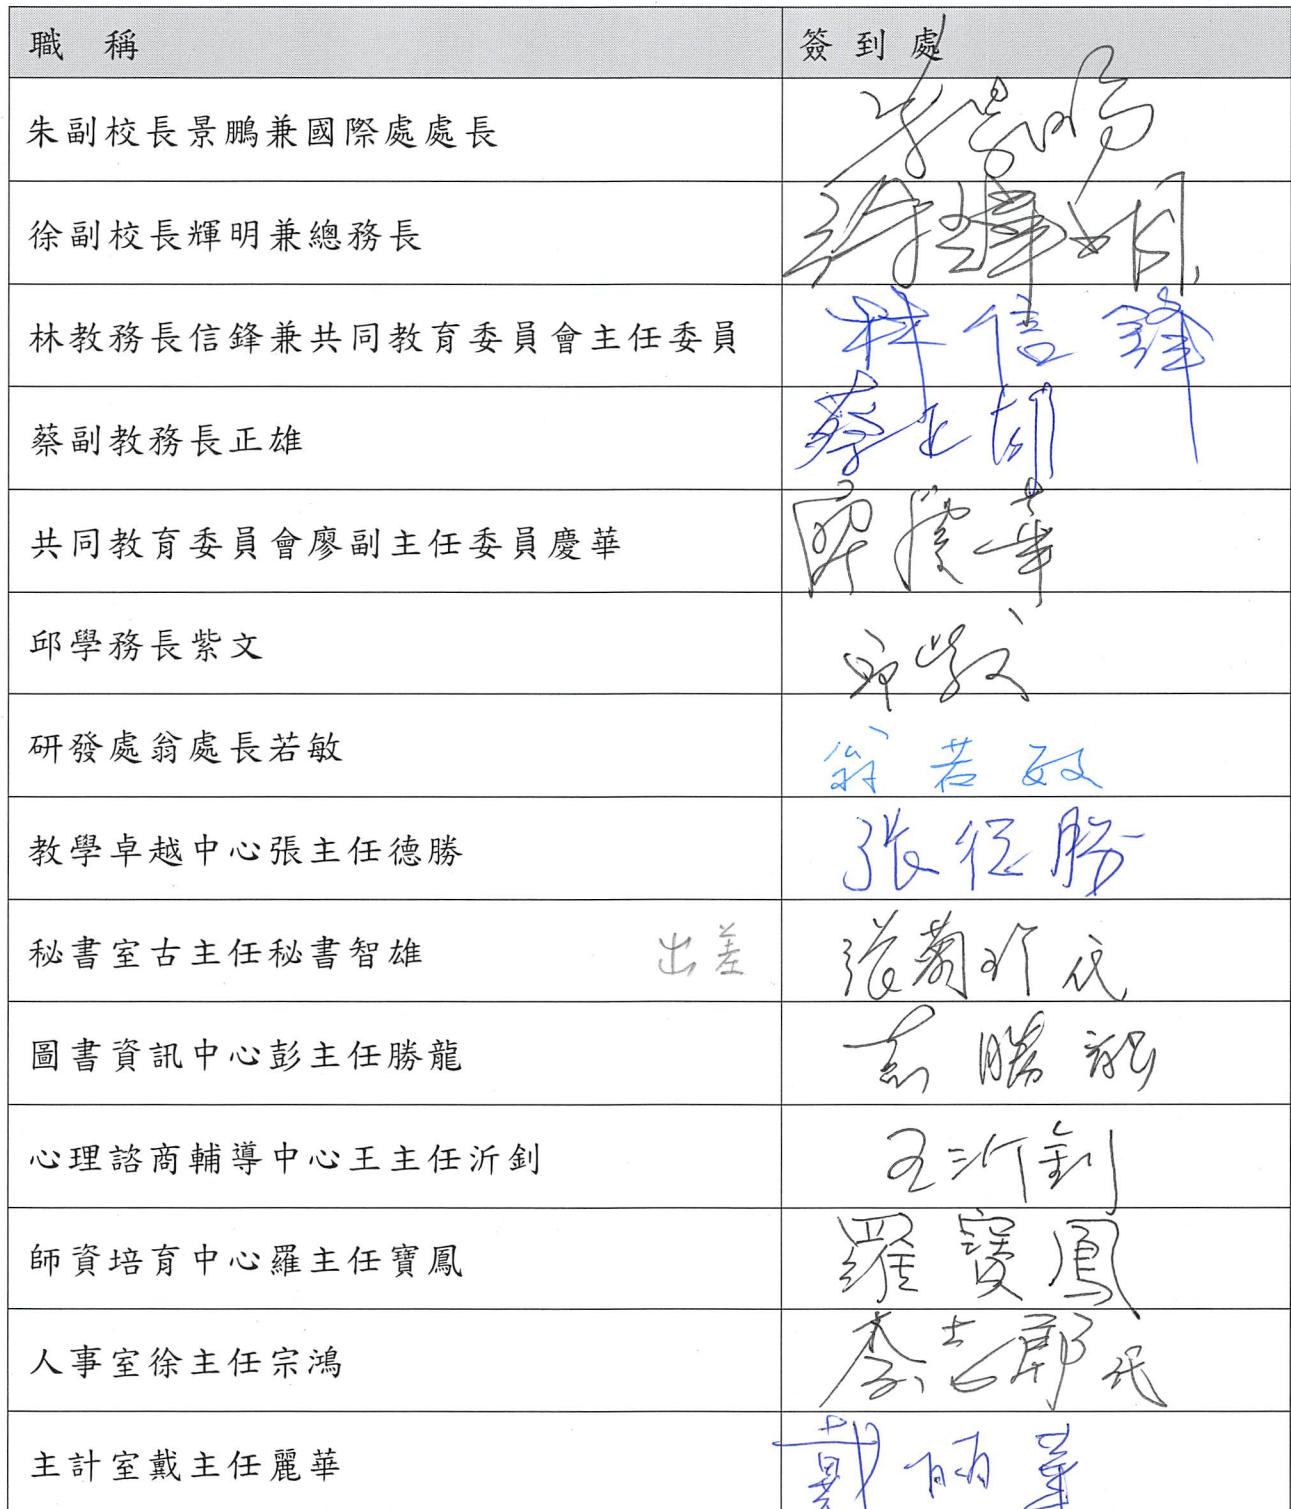 職稱 簽到處
朱副校長景鵬兼國際處處長 朱景鵬
徐副校長輝明兼總務長 徐輝明
林教務長信鋒兼共同教育委員會主任委員 林信鋒
蔡副教務長正雄 蔡正雄
共同教育委員會廖副主任委員慶華 廖慶華
邱學務長紫文 邱紫文
研發處翁處長若敏 翁若敏
教學卓越中心張主任德勝 張德勝
秘書室古主任秘書智雄 出差 張菊珍代
圖書資訊中心彭主任勝龍 彭勝龍
心理諮商輔導中心王主任沂釗 王沂釗
師資培育中心羅主任寶鳳 羅寶鳳
人事室徐主任宗鴻 代
主計室戴主任麗華 戴麗華